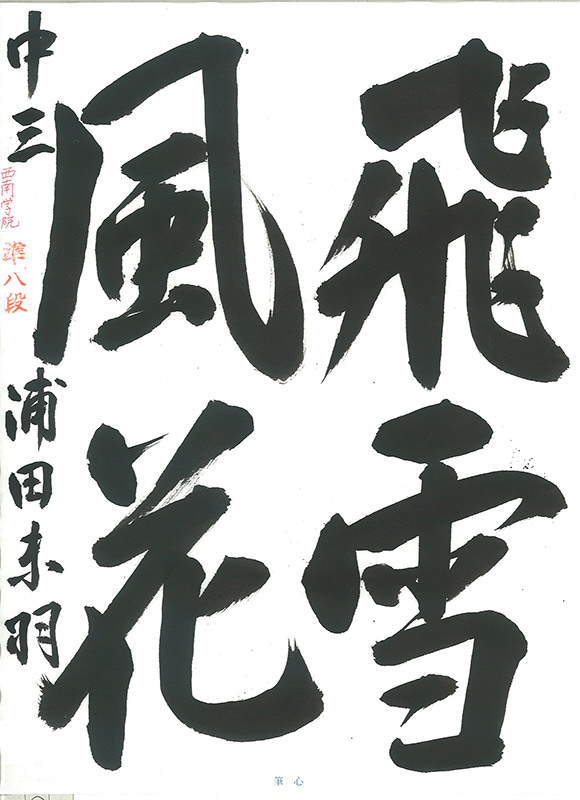 飛雪
風花
中三
西南学院
準八段
浦田未羽
筆心